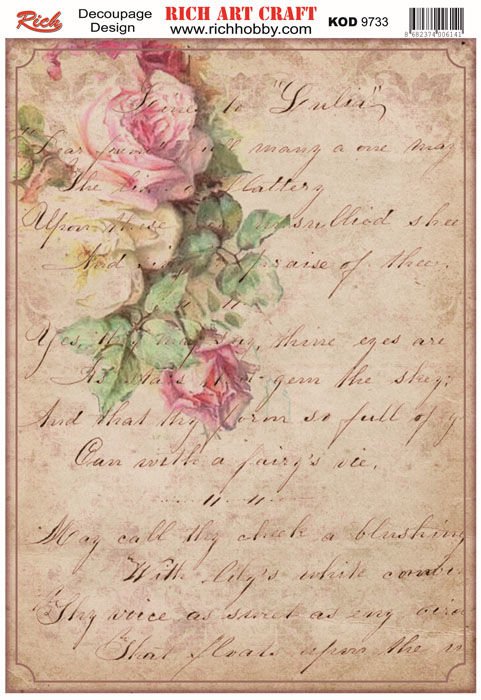 Rich
Decoupage
Design
RICH ART CRAFT
www.richhobby.com
KOD 9733
8 682374 006141
Lines to "Julia"
"Dear friend" will many a one may
The line of flattery
Upon these unsullied shee
And in praise of thee.
" "
Yes, they may say, thine eyes are
As stars that gem the sky;
And that thy form so full of g
Can with a fairy's vie.
" "
May call thy cheek a blushing
With lily's white combi
Thy voice as sweet as any bird
That floats upon the